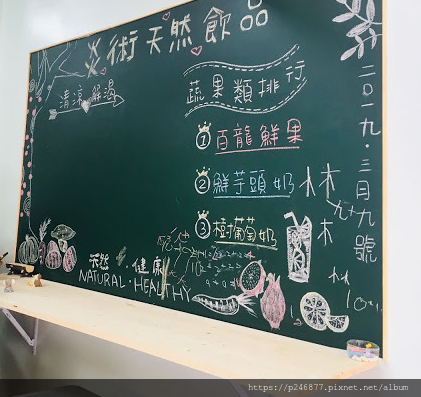 炎術天然飲品
清涼解渴
蔬果類排行
① 百龍鮮果
② 鮮芋頭奶
③ 樹葡萄奶
二〇一九・三月九號
林
木
九十九
天然・健康
NATURAL・HEALTHY
https://p246877.pixnet.net/album